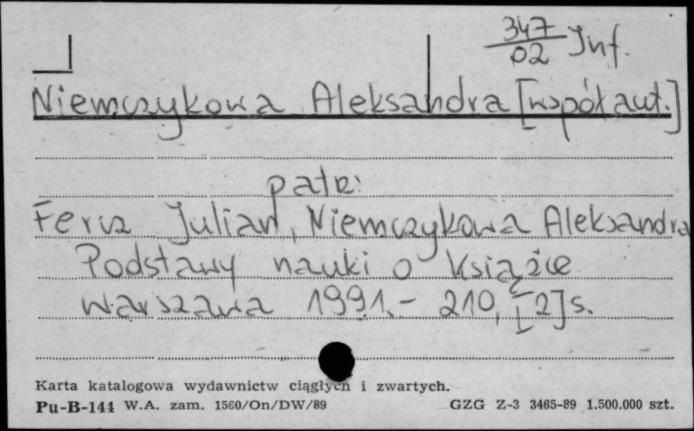 347
02 Inf.
Niemczykowa Aleksandra [współaut.]
patrz:
Fercz Julian, Niemczykowa Aleksandra
Podstawy nauki o książce
Warszawa 1991.- 210, [2] s.
Karta katalogowa wydawnictw ciągłych i zwartych.
Pu-B-144 W.A. zam. 1560/On/DW/89 GZG Z-3 3465-89 1.500.000 szt.